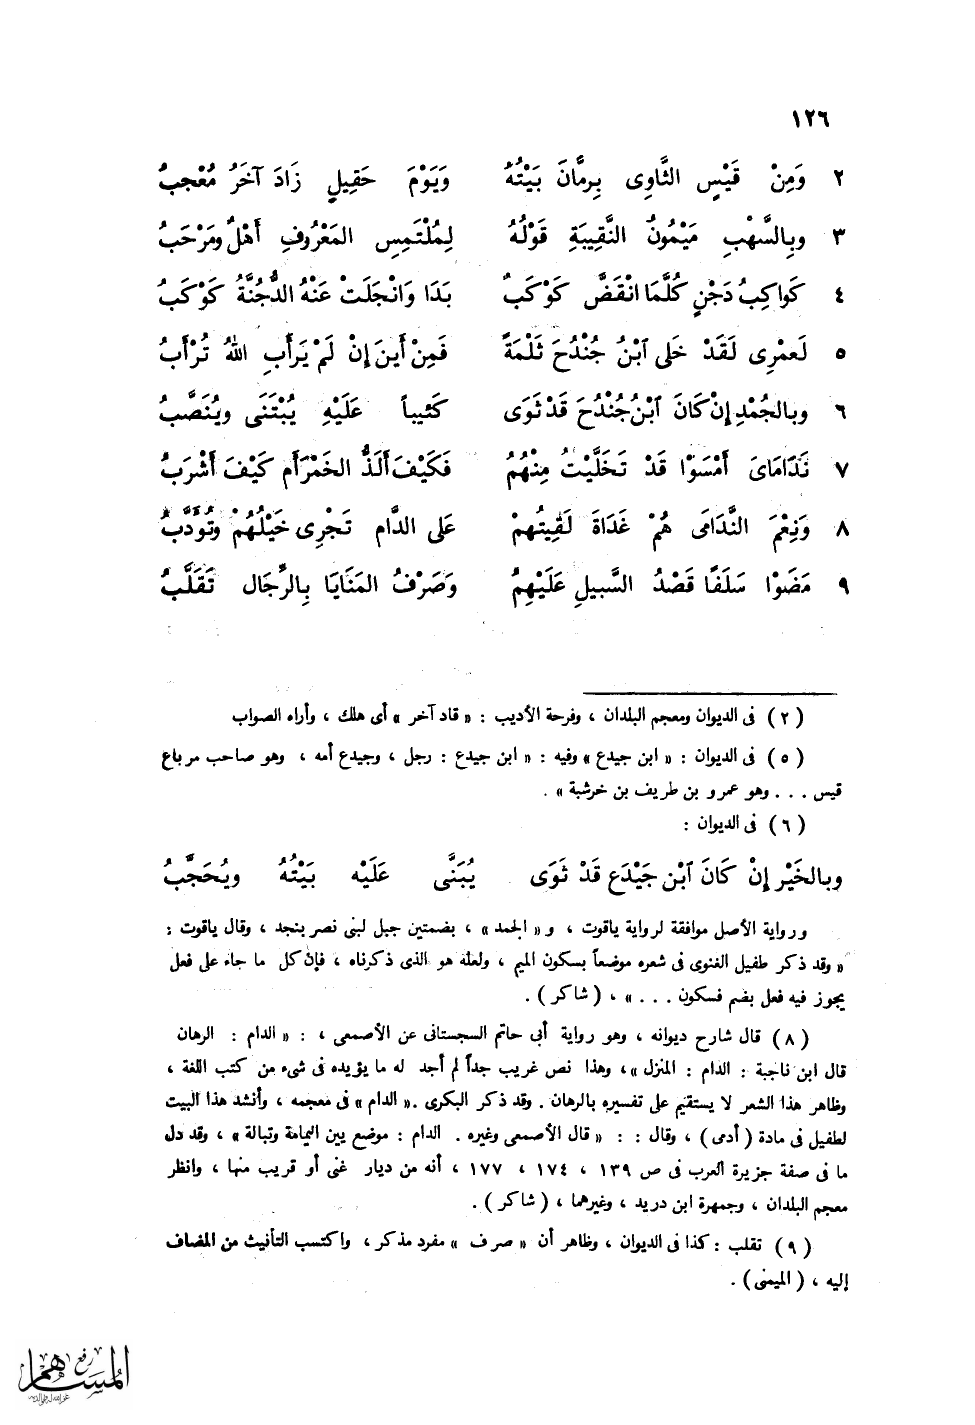 ١٢٦
٢ وَمِنْ قَيْسٍ الثَّاوِى بِرِمَّانَ بَيْتُهُ وَيَوْمَ حَقِيلٍ زَادَ آخَرُ مُعْجِبُ
٣ وبِالسَّهْبِ مَيْمُونُ النَّقِيبَةِ قَوْلُهُ لِمُلْتَمِسِ المَعْرُوفِ أَهْلٌ ومَرْحَبُ
٤ كَواكِبُ دَجْنٍ كُلَّمَا انْقَضَّ كَوْكَبٌ بَدَا وَانْجَلَتْ عَنْهُ الدُّجُنَّةُ كَوْكَبُ
٥ لَعمْرِى لَقَدْ خَلى ٱبْنُ جُنْدُحَ ثَلْمَةً فَمِنْ أَينَ إِنْ لَمْ يَرأَبِ اللهُ تُرْأَبُ
٦ وبالجُمْدِ إِنْ كَانَ ٱبْنُ جُنْدُحَ قَدْ ثَوَى كَثيباً عَلَيْهِ يُبْتَنَى ويُنَصَّبُ
٧ نَدَامَاىَ أَمْسَوْا قَدْ تَخَلَّيْتُ مِنْهُمُ فَكَيْفَ أَلَذُّ الخَمْرَ أَم كَيْفَ أَشْرَبُ
٨ وَنِعْمَ النَّدَامَى هُمْ غَدَاةَ لَقِيتُهمْ عَلى الدَّام تَجْرِى خَيْلُهُمْ وتُوَدَّبُ
٩ مَضَوْا سَلَفًا قَصْدُ السَّبيلِ عَلَيْهِمُ وَصَرْفُ المَنَايَا بِالرِّجَال تَقَلَّبُ
( ٢ ) فى الديوان ومعجم البلدان ، وفرحة الأديب : « قاد آخر » أى هلك ، وأراه الصواب
( ٥ ) فى الديوان : « ابن جيدع » وفيه : « ابن جيدع : رجل ، وجيدع أمه ، وهو صاحب مرباع
قيس . . . وهو عمرو بن طريف بن خرشبة » .
( ٦ ) فى الديوان :
وبالخَيْر إِنْ كَانَ ٱبْن جَيْدَع قَدْ ثَوَى يُبَنَّى عَلَيْه بَيْتُهُ ويُحَجَّبُ
ورواية الأصل موافقة لرواية ياقوت ، و« الجمد » ، بضمتين جبل لبنى نصر بنجد ، وقال ياقوت :
« وقد ذكر طفيل الغنوى فى شعره موضعاً بسكون الميم ، ولعله هو الذى ذكرناه ، فإن كل ما جاء على فعل
يجوز فيه فعل بضم فسكون . . . » ، ( شاكر ) .
( ٨ ) قال شارح ديوانه ، وهو رواية أبي حاتم السجستانى عن الأصمعى ، : « الدام : الرهان
قال ابن ناجبة : الدام : المنزل »، وهذا نص غريب جداً لم أجد له ما يؤيده فى شىء من كتب اللغة ،
وظاهر هذا الشعر لا يستقيم على تفسيره بالرهان . وقد ذكر البكرى . « الدام » فى معجمه ، وأنشد هذا البيت
لطفيل فى مادة ( أدمى ) ، وقال : : « قال الأصمعى وغيره . الدام : موضع بين اليمامة وتبالة » ، وقد دل
ما فى صفة جزيرة العرب فى ص ١٣٩ ، ١٧٤ ، ١٧٧ ، أنه من ديار غنى أو قريب منها ، وانظر
معجم البلدان ، وجمهرة ابن دريد ، وغيرهما ، ( شاكر ) .
( ٩ ) تقلب : كذا فى الديوان ، وظاهر أن « صرف » مفرد مذكر ، واكتسب التأنيث من المضاف
إليه ، ( الميمنى ) .